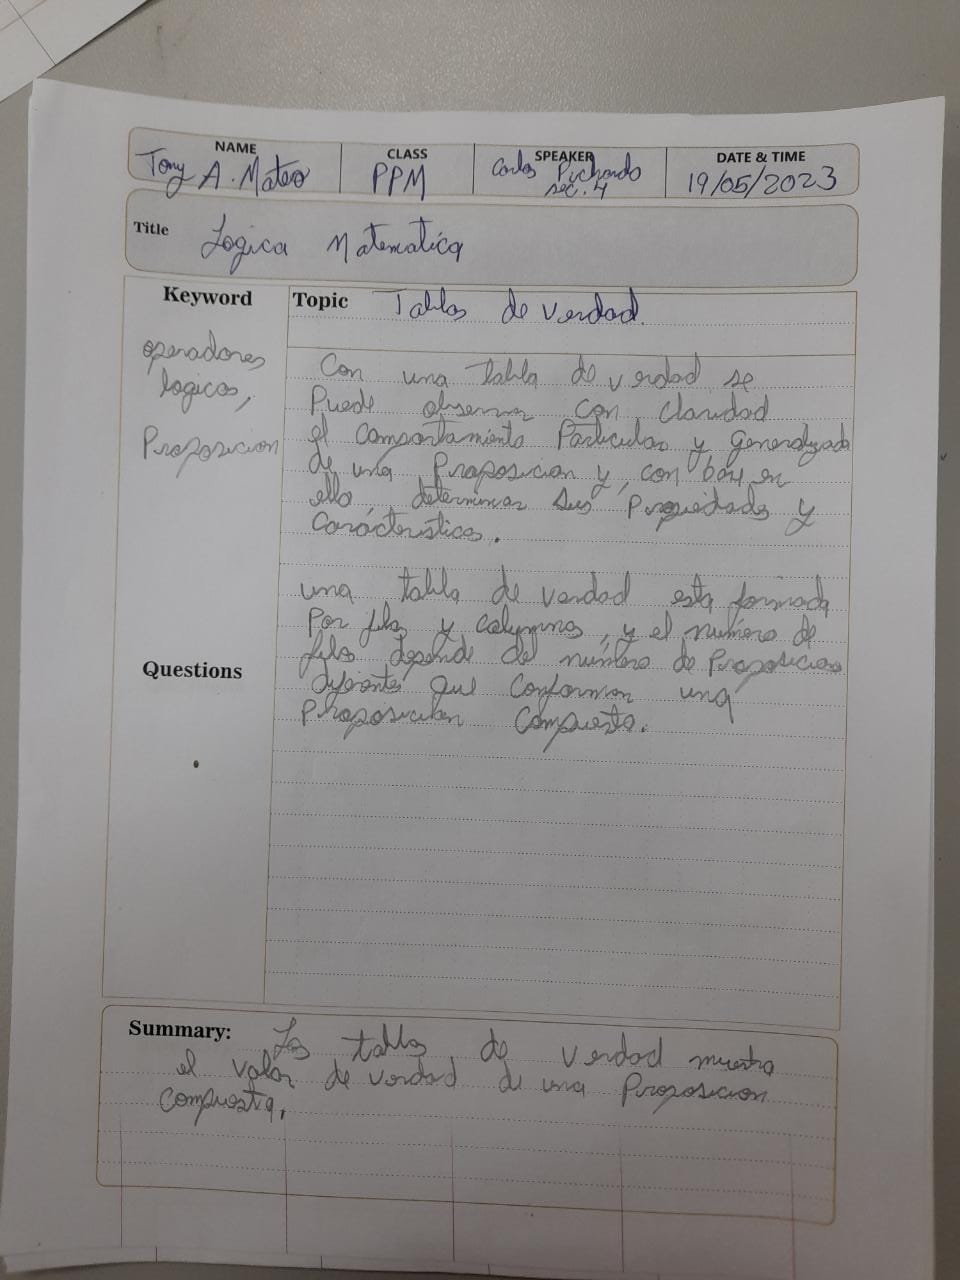 NAME CLASS SPEAKER DATE & TIME
Tony A. Mateo PPM Carlos Pichardo sec. 4 19/05/2023
Title Logica Matematica
Keyword Topic Tablas de verdad.
operadores
logicos,
Proposicion
Con una tabla de verdad se
Puede observar con claridad
el comportamiento Particular y generalizado
de una Proposicion y, con base en
ello, determinar sus Propiedades y
Carácteristicas.
una tabla de verdad esta formada
Por filas y columnas, y el número de
filas depende del número de Proposiciones
diferentes que conforman una
Proposicion Compuesta.
Questions
Summary: Las tablas de verdad muestra
el valor de verdad de una Proposicion
Compuesta,